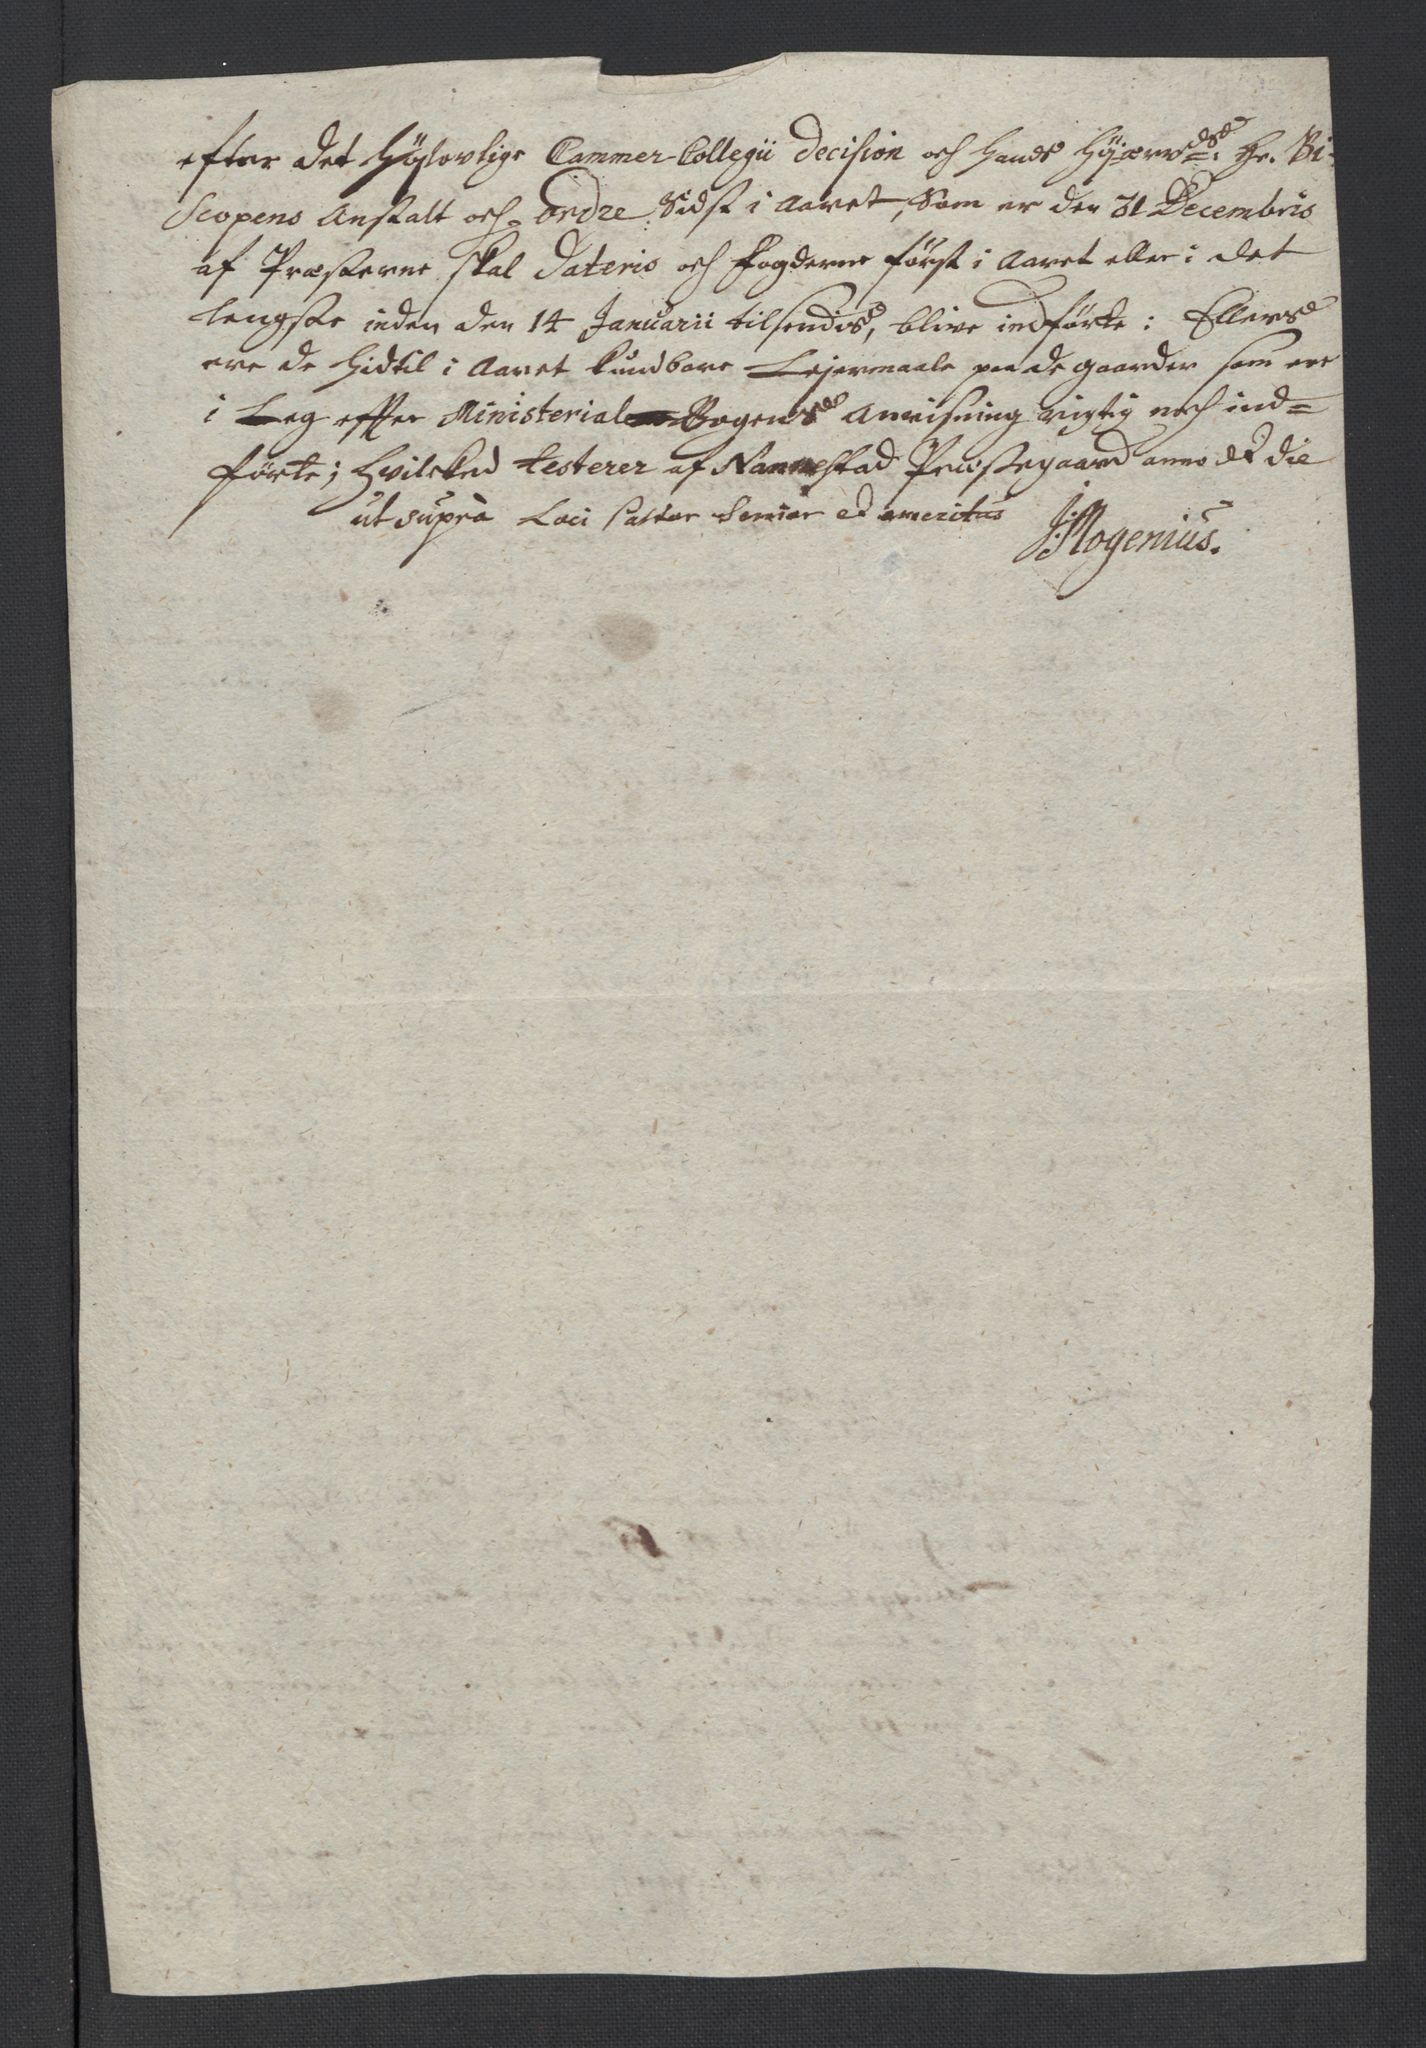 efter det Höylovlige Cammer-Collegii Decision och Hands Höyærwds: Hr. Bi-
scopens Anstalt och ordre sidst i Aaret, som er den 31 Decembris
af Præsterne skal dateris och fogderne først i Aaret eller i det
lengste inden den 14 Januarii tilsendis, blive indførte: Ellers
ere de hidtil i Aaret kundbare Lejermaale paa de gaarder som ere
i Leg effter Ministerial Bogens Anvisning rigtig noch ind=
førte; Hvilcked testerer af Nannestad Præstegaard anno et die
ut supra Loci Pastor Senior et emeritus
J: Mogenius.